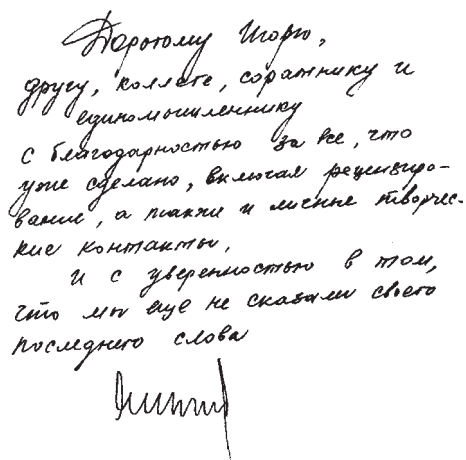 Дорогому Игорю,
другу, коллеге, соратнику и
единомышленнику
с благодарностью за все, что
уже сделано, включая рецензиро-
вание, а также и личные творчес-
кие контакты,
и с уверенностью в том,
что мы еще не сказали своего
последнего слова